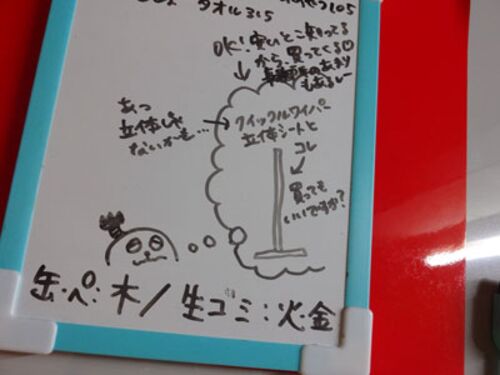 タオル315
105
OK!安いとこ知ってる
から、買ってくる♡
もあるしー
あっ
立体じゃ
ないかも…
クイックルワイパー
立体シートと
コレ
買っても
いいですか?
缶・ペ:木/生ゴミ:火・金